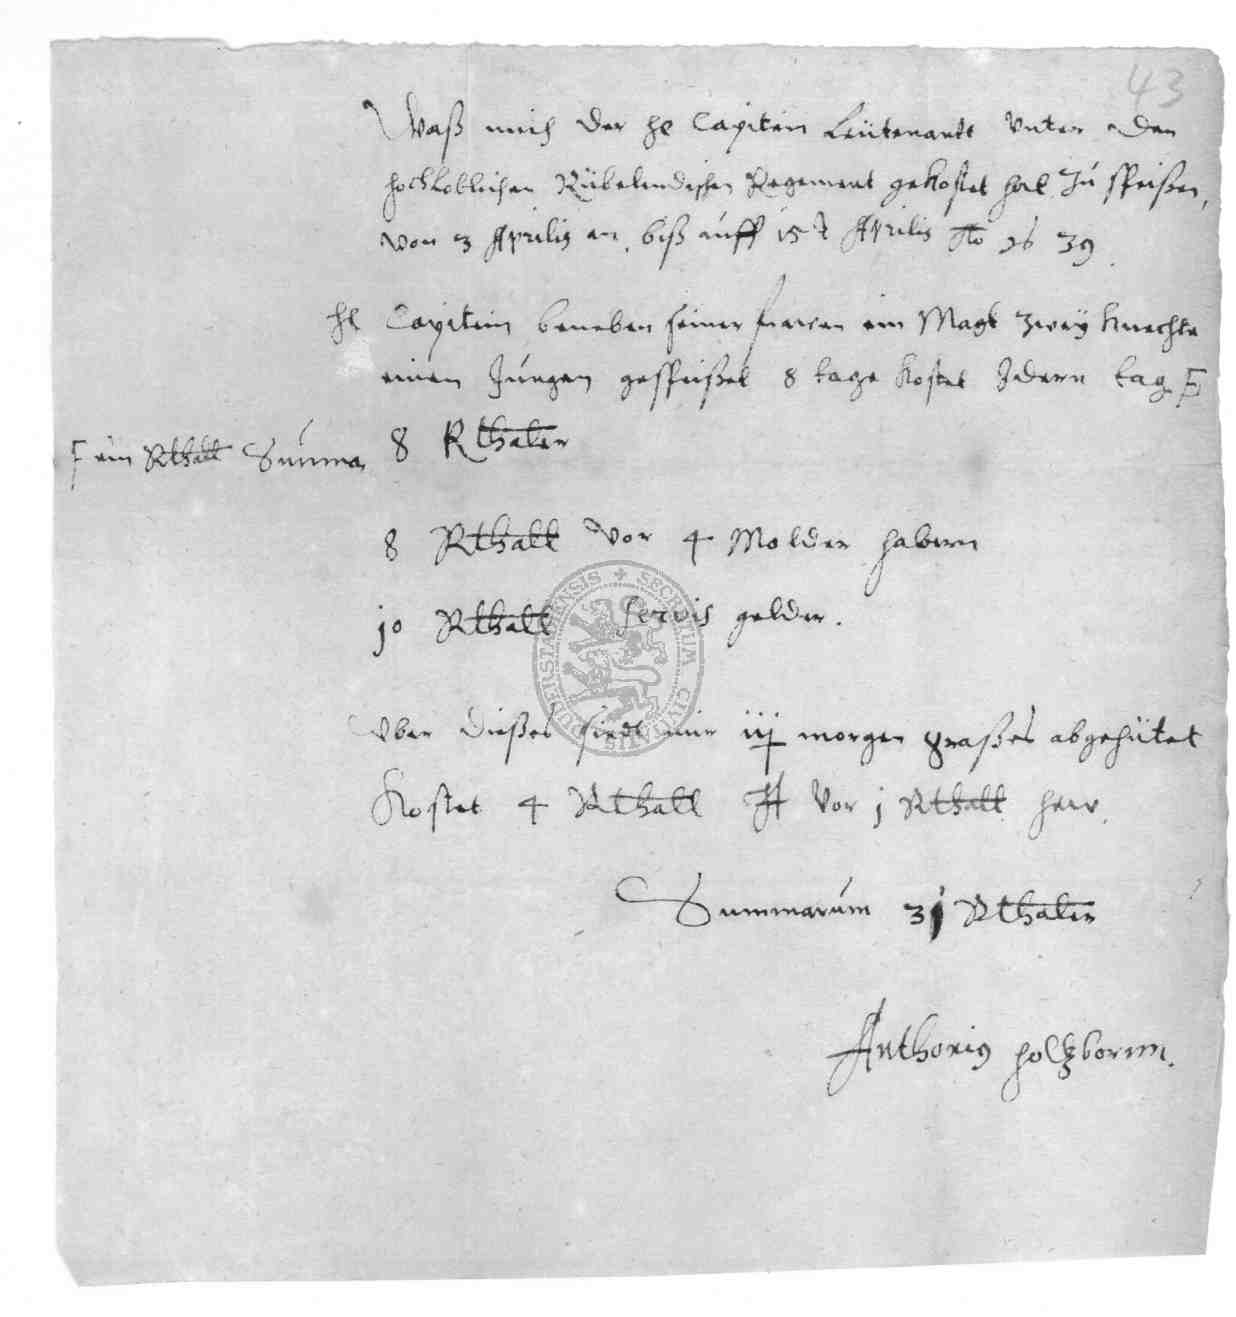 43
Waß mich der H Capitein Leütenandt Vnter den
hochLoblichen Rübelendischen Regement gekostet hat Zu speißen,
Von 3 Aprilis an, biß auff 15 t Aprilis Ao 16 39.
H Capitein beneben seiner frawen ein Magt zweÿ Knechte
einen Jungen gespeißet 8 tage kostet Jdern tag
ein Rthall Summa 8 Rthaler
8 Rthall Vor 4 Molder habern
10 Rthall servis gelder.
Vber dießes sindt mir iij morgen graßes abgehütet
Kostet 4 Rthall Jt Vor j Rthall haw.
Summarum 31 Rthaler
Anthonius holtzbornn.
SECRETUM CIVITATIS DUDERSTADENSIS